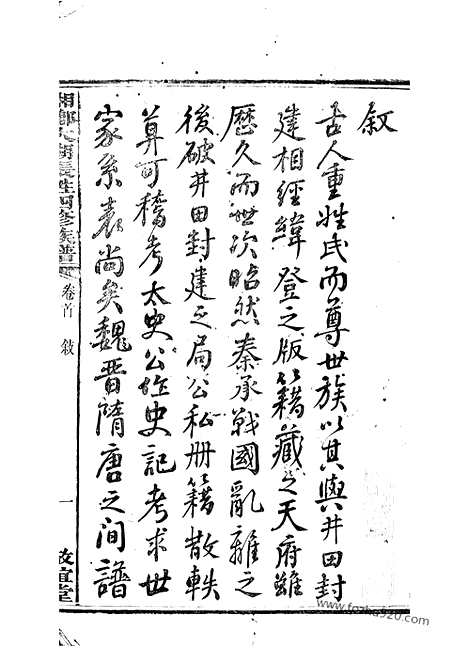 敘
古人重姓氏而尊世族以其與井田封
建相經緯登之版籍藏之天府雖
歷久而世次昭然秦承戰國亂離之
後破井田封建之局公私冊籍散軼
莫可稽考太史公作史記考求世
家系表尚矣魏晉隋唐之间譜
四修族譜
卷首 敘
一
敦誼堂
www.fozhu920.com